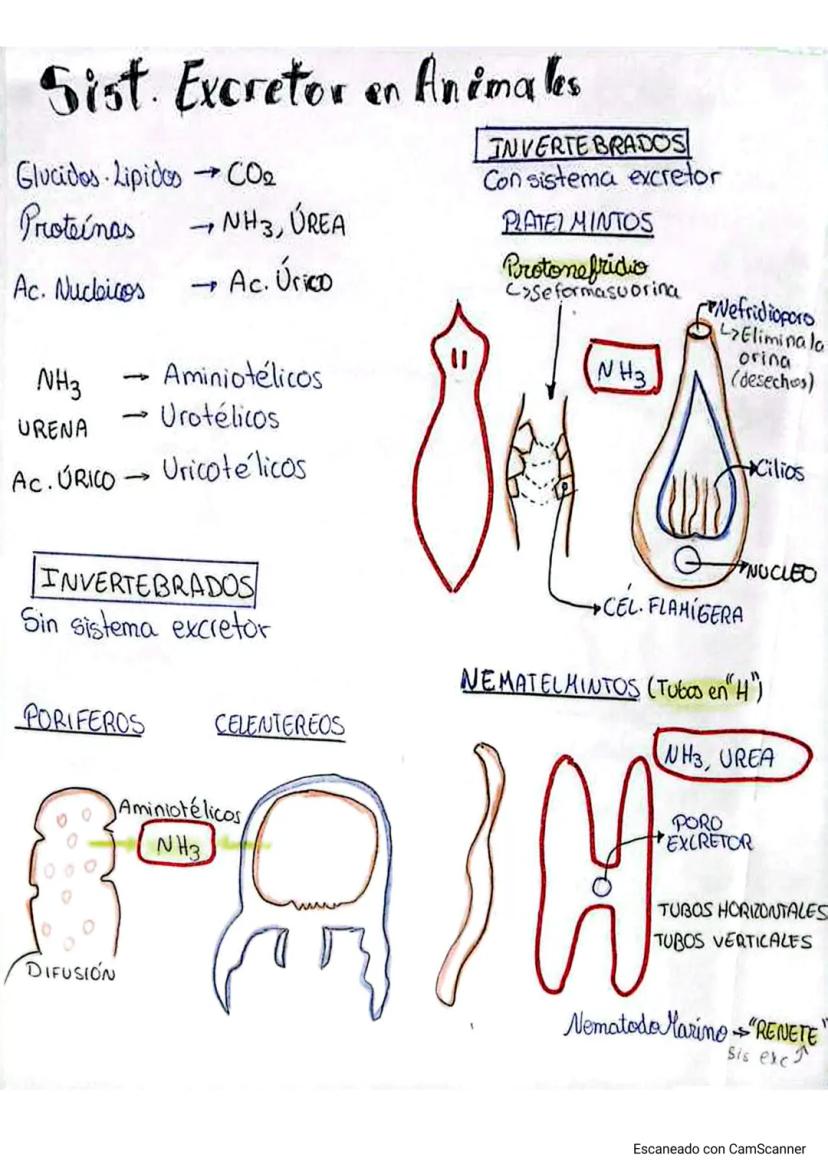 Sist. Excretor en Animales
Glucidos. Lipidos → CO2
Proteínas → NH3, ÚREA
Ac. Nucleicos → Ac. Úrico
NH3 → Aminiotélicos
URENA → Urotélicos
Ac. ÚRICO → Uricotélicos
INVERTEBRADOS
Sin sistema excretor
PORIFEROS
CELENTEREOS
Aminiotélicos
NH3
DIFUSIÓN
INVERTEBRADOS
Con sistema excretor
PLATELMINTOS
Protonefridio
↳Se forma su orina
NH3
Nefridioporo
↳Elimina la
orina
(desechos)
Cilios
NUCLEO
CÉL. FLAMÍGERA
NEMATELMINTOS (Tubos en "H")
NH3, UREA
PORO
EXCRETOR
TUBOS HORIZONTALES
TUBOS VERTICALES
Nematodo Marino → "RENETE"
Sis exc ↗
Escaneado con CamScanner